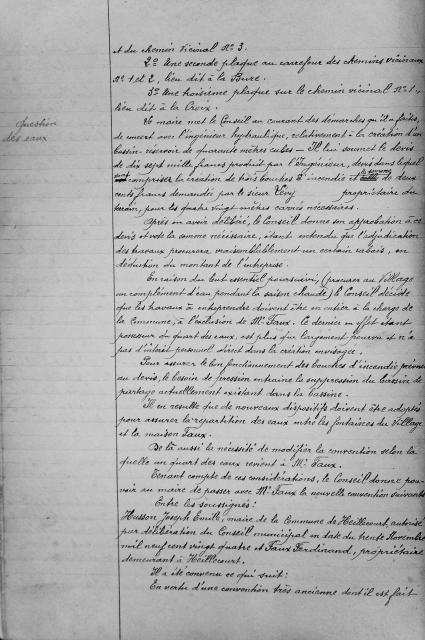 et du chemin vicinal N° 3.
2° Une seconde plaque au carrefour des chemins vicinaux
N° 1 et 2, lieu dit à la Bure.
3° Une troisième plaque sur le chemin vicinal N° 1,
lieu dit à la Croix.
Question
des eaux
Le maire met le Conseil au courant des démarches qu'il a faites,
de concert avec l'ingénieur hydraulique, relativement à la création d'un
bassin réservoir de quarante mètres cubes — Il lui soumet le devis
de dix sept mille francs produit par l'Ingénieur, devis dans lequel
comprise la création de trois bouches à incendie et la somme de deux
cents francs demandée par le sieur Lévy propriétaire du
terrain, pour les quatre vingt mètres carrés nécessaires.
Après en avoir délibéré, le Conseil donne son approbation à ce
devis et vote la somme nécessaire, étant entendu que l'adjudication
des travaux procurera vraisemblablement un certain rabais, en
déduction du montant de l'entreprise.
En raison du but essentiel poursuivi, (procurer au Village
un complément d'eau pendant la saison chaude) le Conseil décide
que les travaux à entreprendre doivent être en entier à la charge de
la Commune, à l'exclusion de Mr Faux. Ce dernier en effet étant
possesseur du quart des eaux, est plus que largement pourvu et n'a
pas d'intérêt personnel direct dans la création envisagée.
Pour assurer le bon fonctionnement des bouches d'incendie prévues
au devis, le besoin de pression entraîne la suppression du bassin de
partage actuellement existant dans la bassine.
Il en résulte que de nouveaux dispositifs doivent être adoptés
pour assurer la répartition des eaux entre les fontaines du Village
et la maison Faux.
De là aussi la nécessité de modifier la convention selon la
quelle un quart des eaux revient à Mr Faux.
Tenant compte de ces considérations, le Conseil donne pou-
voir au maire de passer avec Mr Faux la nouvelle convention suivante
Entre les soussignés:
Husson Joseph Emile, maire de la Commune de Heillecourt, autorisé
par délibération du Conseil municipal en date du trente Novembre
mil neuf cent vingt quatre et Faux Ferdinand, propriétaire
demeurant à Heillecourt.
Il a été convenu ce qui suit:
En vertu d'une convention très ancienne dont il est fait